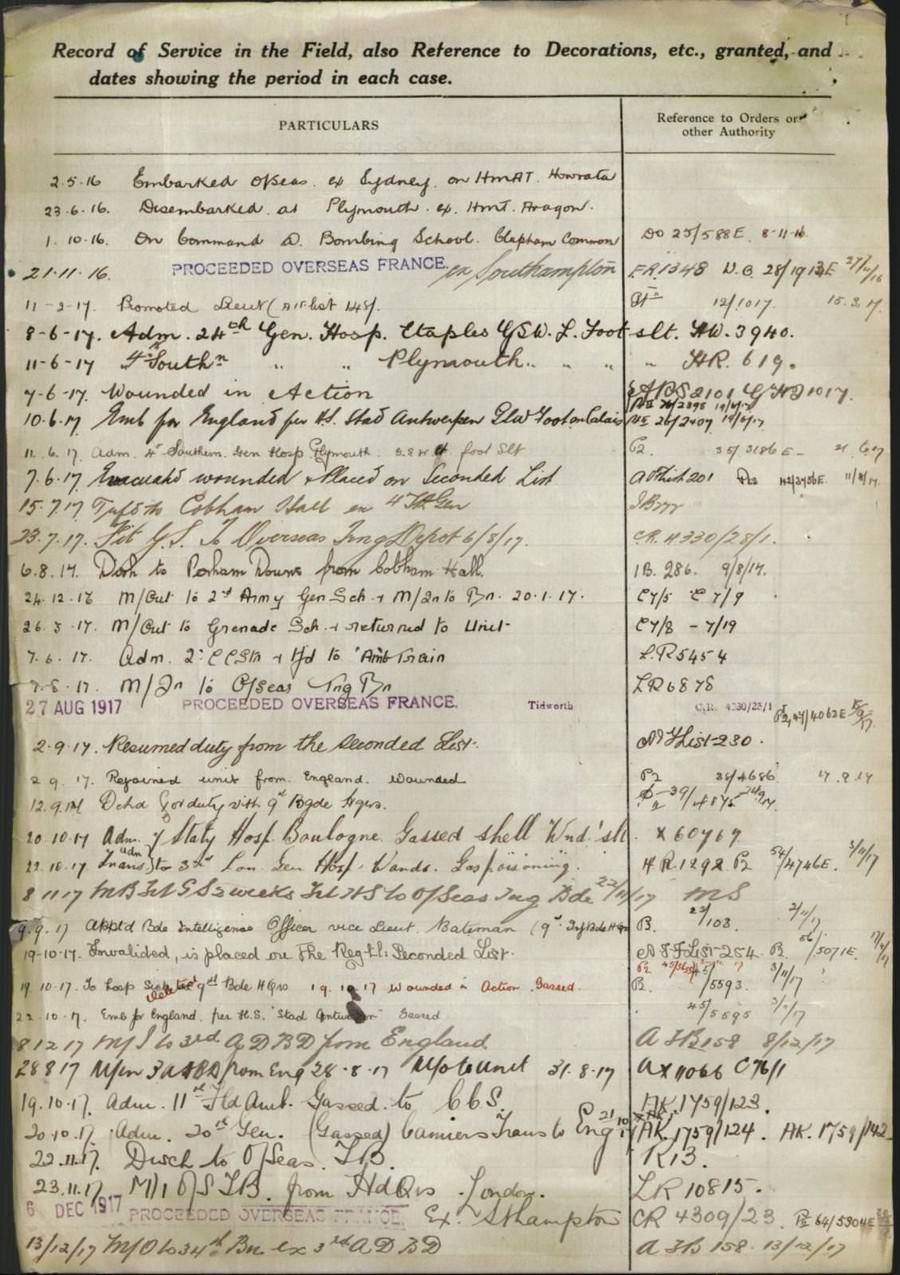 Record of Service in the Field, also Reference to Decorations, etc., granted, and
dates showing the period in each case.
PARTICULARS
Reference to Orders or other Authority
2.5.16 Embarked O/Seas. ex Sydney. on HMAT. Howrata
23.6.16. Disembarked at Plymouth. ex. Hmt. Aragon.
1.10.16. On Command D. Bombing School. Clapham Common DO 25/588E 8-11-16.
21.11.16. PROCEEDED OVERSEAS FRANCE. ex Southampton ER1348
11-2-17. Promoted Lieut 12/1017. 15.3.17
8-6-17. Adm. 24th Gen. Hosp. Etaples GSW. L. Foot slt. HW. 3940.
11-6-17 4th Southn " " Plymouth. " " " " HR. 619.
7-6-17. Wounded in Action
10.6.17 Emb for England per H.S. Stad Antwerpen
11.6.17. Adm. 4th Southern. Gen Hosp Plymouth. foot Slt 35/3186E
7.6.17 Evacuated wounded & Placed on Seconded List
15.7.17 Cobham Hall ex 4th Gen
23.7.17. Fit G.S. To Overseas Tng Depot 6/8/17. CR. 4330/28/1.
6.8.17. Disch to Perham Downs from Cobham Hall. 1B. 286. 9/8/17.
24.12.16 M/Out to 2nd Army Gen Sch. & M/In to Bn. 20.1.17. C7/5 C7/9
26.3.17. M/Out to Grenade Sch. & returned to Unit C7/8 - 7/19
7.6.17. Adm. 2nd CCStn & Tfd to Amb Train LR5454
M/In to O/Seas Tng Bn LR6878
27 AUG 1917 PROCEEDED OVERSEAS FRANCE. Tidworth C.R. 4330/28/1
2.9.17. Resumed duty from the Seconded List. List 230.
2 9. 17. Rejoined unit from England. Wounded 38/4686 17.9.17
12.9.17 Detchd for duty with 9th Bgde Hqrs.
20.10.17 Adm. 7 Staty Hosp. Boulogne. Gassed shell Wnd. slt X60767
22.10.17. Trans to 3rd Lon. Gen Hosp. Wands. Gas poisoning. HR1292 54/4746E. 3/11/17
8 11 17 MB Fit G S 2 weeks O/Seas Tng Bde MS
9.9.17 Appt'd Bde Intelligence Officer vice Lieut. Bateman (9th Inf Bde HQrs 22/103 2/11/17
19.10.17. Invalided, is placed on The Regtl. Seconded List. List 254 56/5071E.
19.10.17. To hosp Sick deleted 9th Bde HQrs 19.10.17 Wounded in Action Gassed. /5593. 3/11/17
22.10.17. Emb for England. per H.S. Stad Antwerpen Gassed 45/5595
8.12.17 M/I to 3rd A D B D from England A F B158 8/12/17
28 8 17 M/In 3 ADBD from Eng 28.8.17 M/O to Unit 31.8.17 C76/1
19.10.17. Adm. 11th Fld Amb. Gassed. to CCS. AK.1759/123.
20.10.17. Adm. 20th Gen. (Gassed) Camiers Trans to Eng AK.1759/124. AK.1759/142
22.11.17. Disch to O/Seas. T.B. K13.
23.11.17 M/I O/S T.B. from HdQrs London. LR 10815.
6 DEC 1917 PROCEEDED OVERSEAS FRANCE. Ex. Sthampton CR 4309/23. 64/5304E
13/12/17 M/O to 34th Bn ex 3rd A D B D A F B 158. 13/12/17